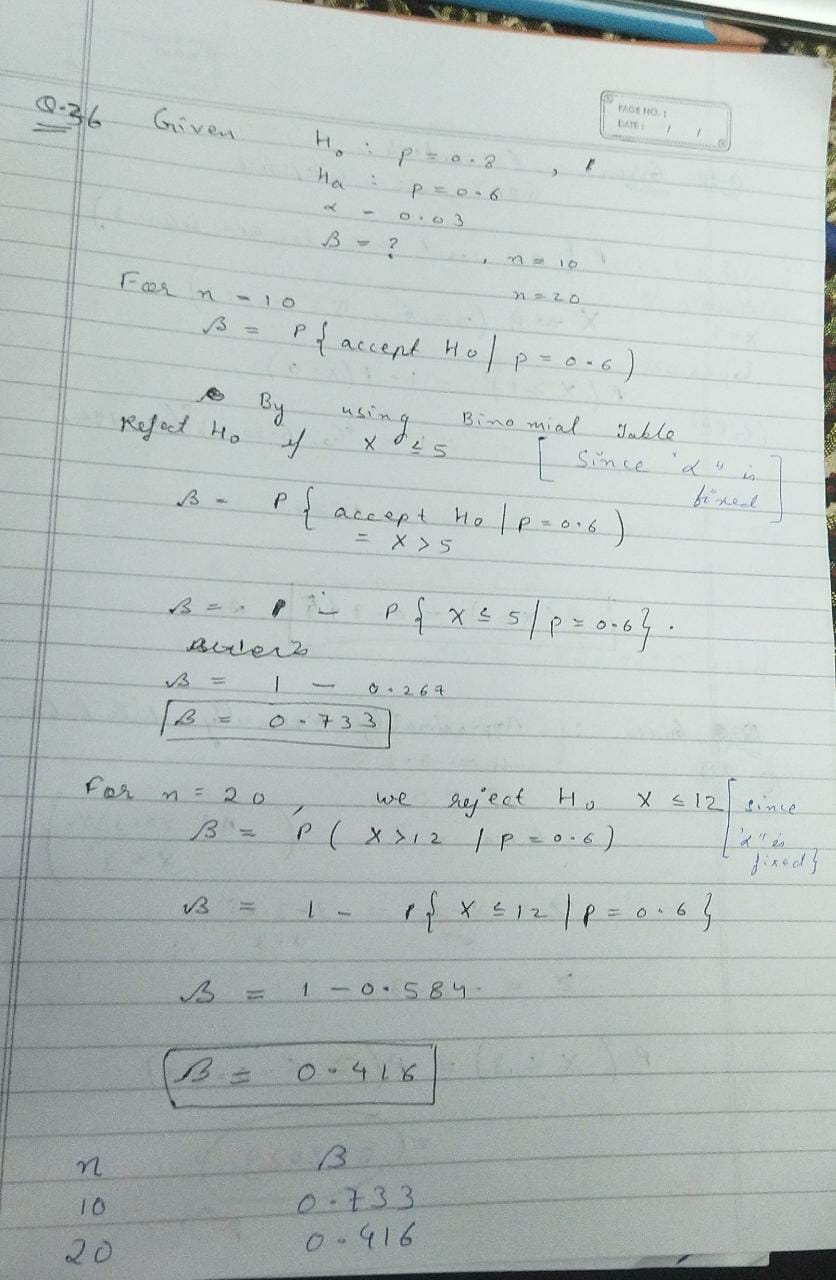 PAGE NO. :
DATE : / /
Q.36 Given H₀ : p = 0.8 ,
Ha : p = 0.6
α = 0.03
β = ? , n = 10
n = 20
For n = 10
β = P{ accept H₀ | p = 0.6 )
By using Binomial Table
Reject H₀ if X ≤ 5 [ Since "α" is fixed ]
β = P{ accept H₀ | p = 0.6 )
= X > 5
β = 1 - P{ X ≤ 5 | p = 0.6 } .
β = 1 - 0.267
β = 0.733
For n = 20 , we reject H₀ X ≤ 12 [ since "α" is fixed }
β = P ( X > 12 | p = 0.6 )
β = 1 - P{ X ≤ 12 | p = 0.6 }
β = 1 - 0.584
β = 0.416
n β
10 0.733
20 0.416